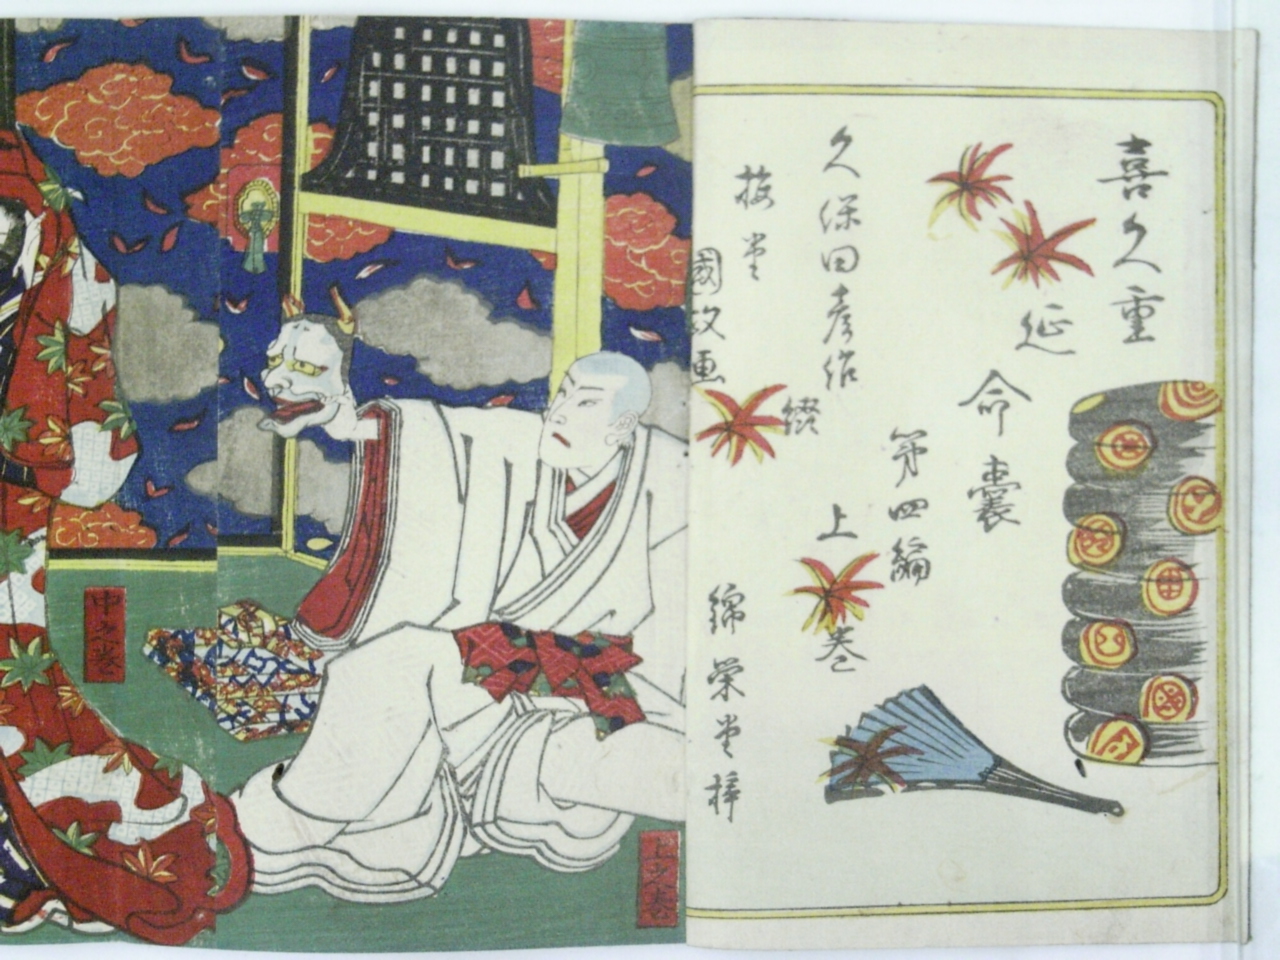 喜久重
延命嚢
第四編
上
巻
久保田彦作
綴
梅堂
國政画
錦栄堂梓
上之巻
中之巻